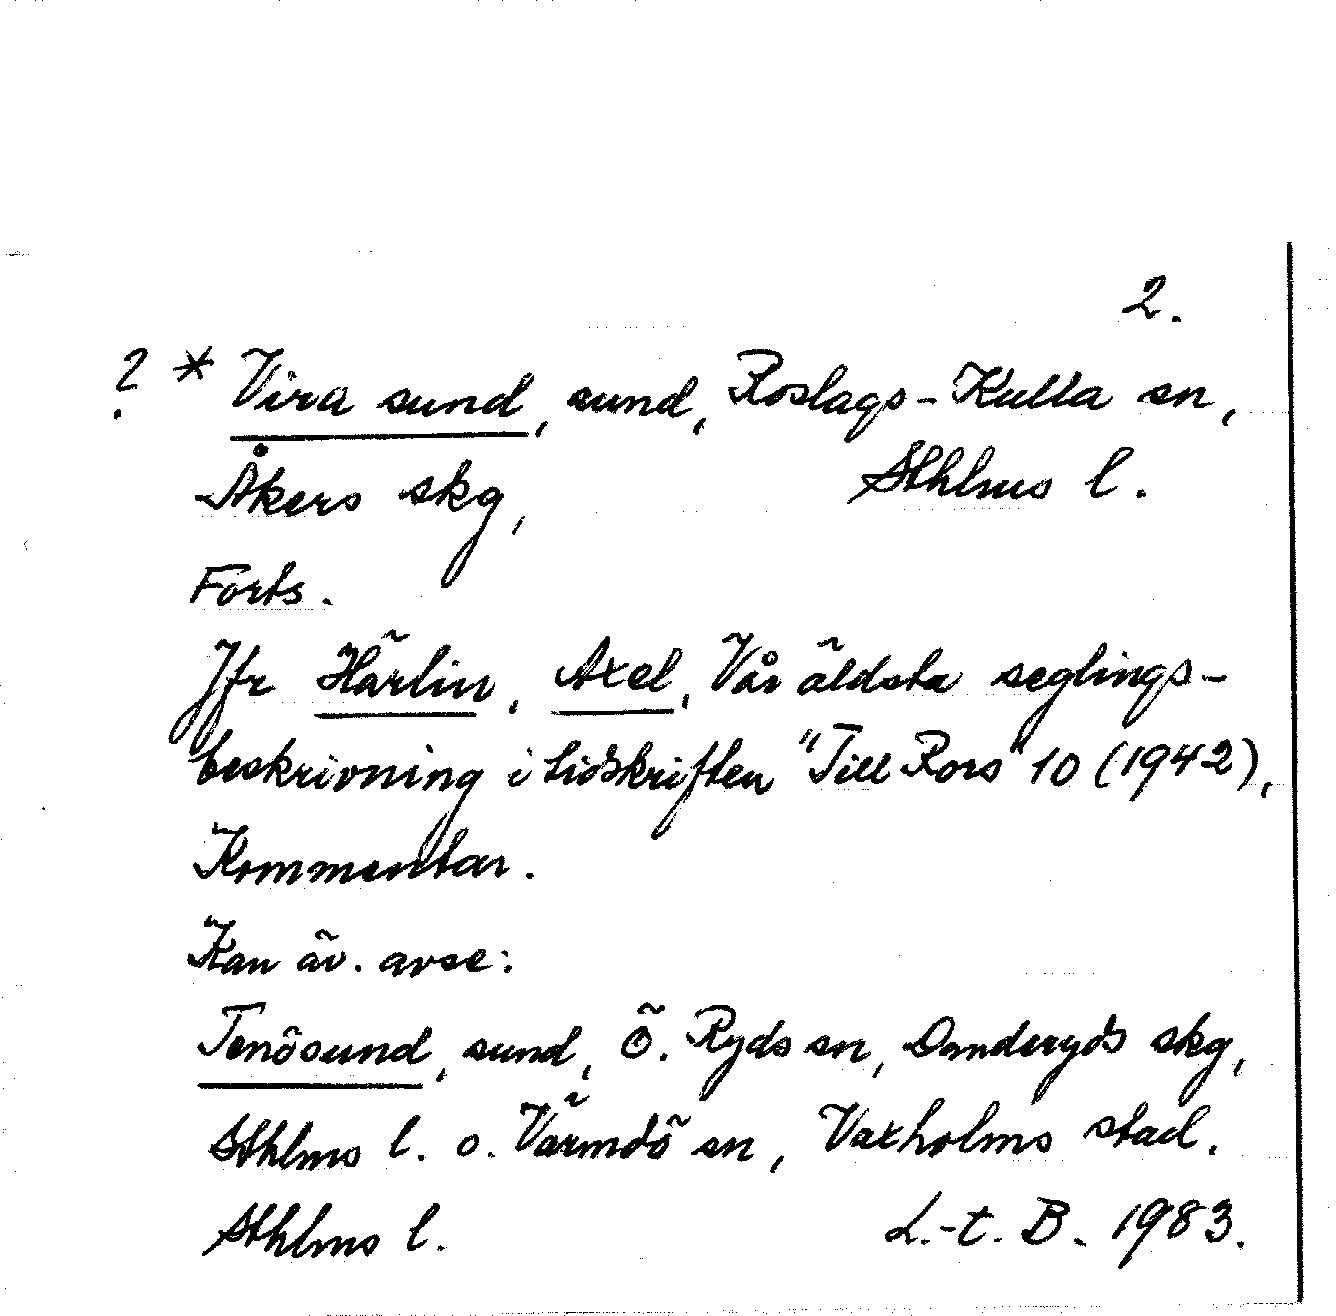 2.
? * Vira sund, sund, Roslags-Kulla sn,
Åkers skg, Sthlms l.
Forts.
Jfr Härlin, Axel, Vår äldsta seglings-
beskrivning i tidskriften "Till Rors" 10 (1942),
Kommentar.
Kan äv. avse:
Tenösund, sund, Ö. Ryds sn, Danderyds skg,
Sthlms l. o. Värmdö sn, Vaxholms stad.
Sthlms l. L.-t. B. 1983.